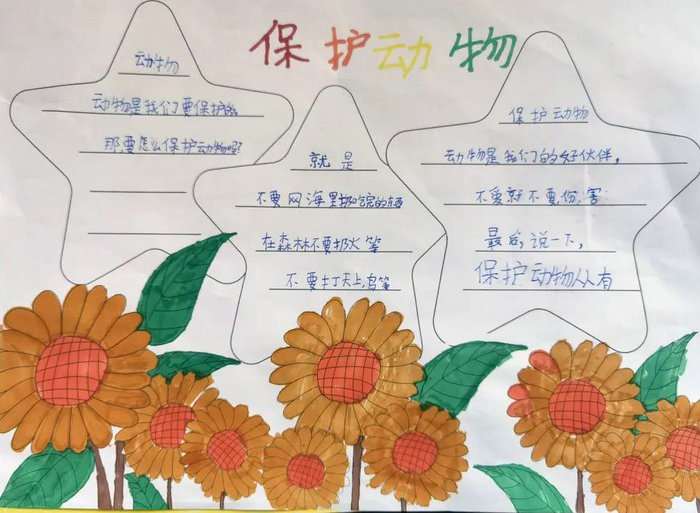 保护动物
动物
动物是我们要保护的
那要怎么保护动物吗?
就是
不要网海里扔脏的东西
在森林不要扔火等
不要打天上鸟等
保护动物
动物是我们的好伙伴,
不爱就不要伤害
最后说一下,
保护动物人人有